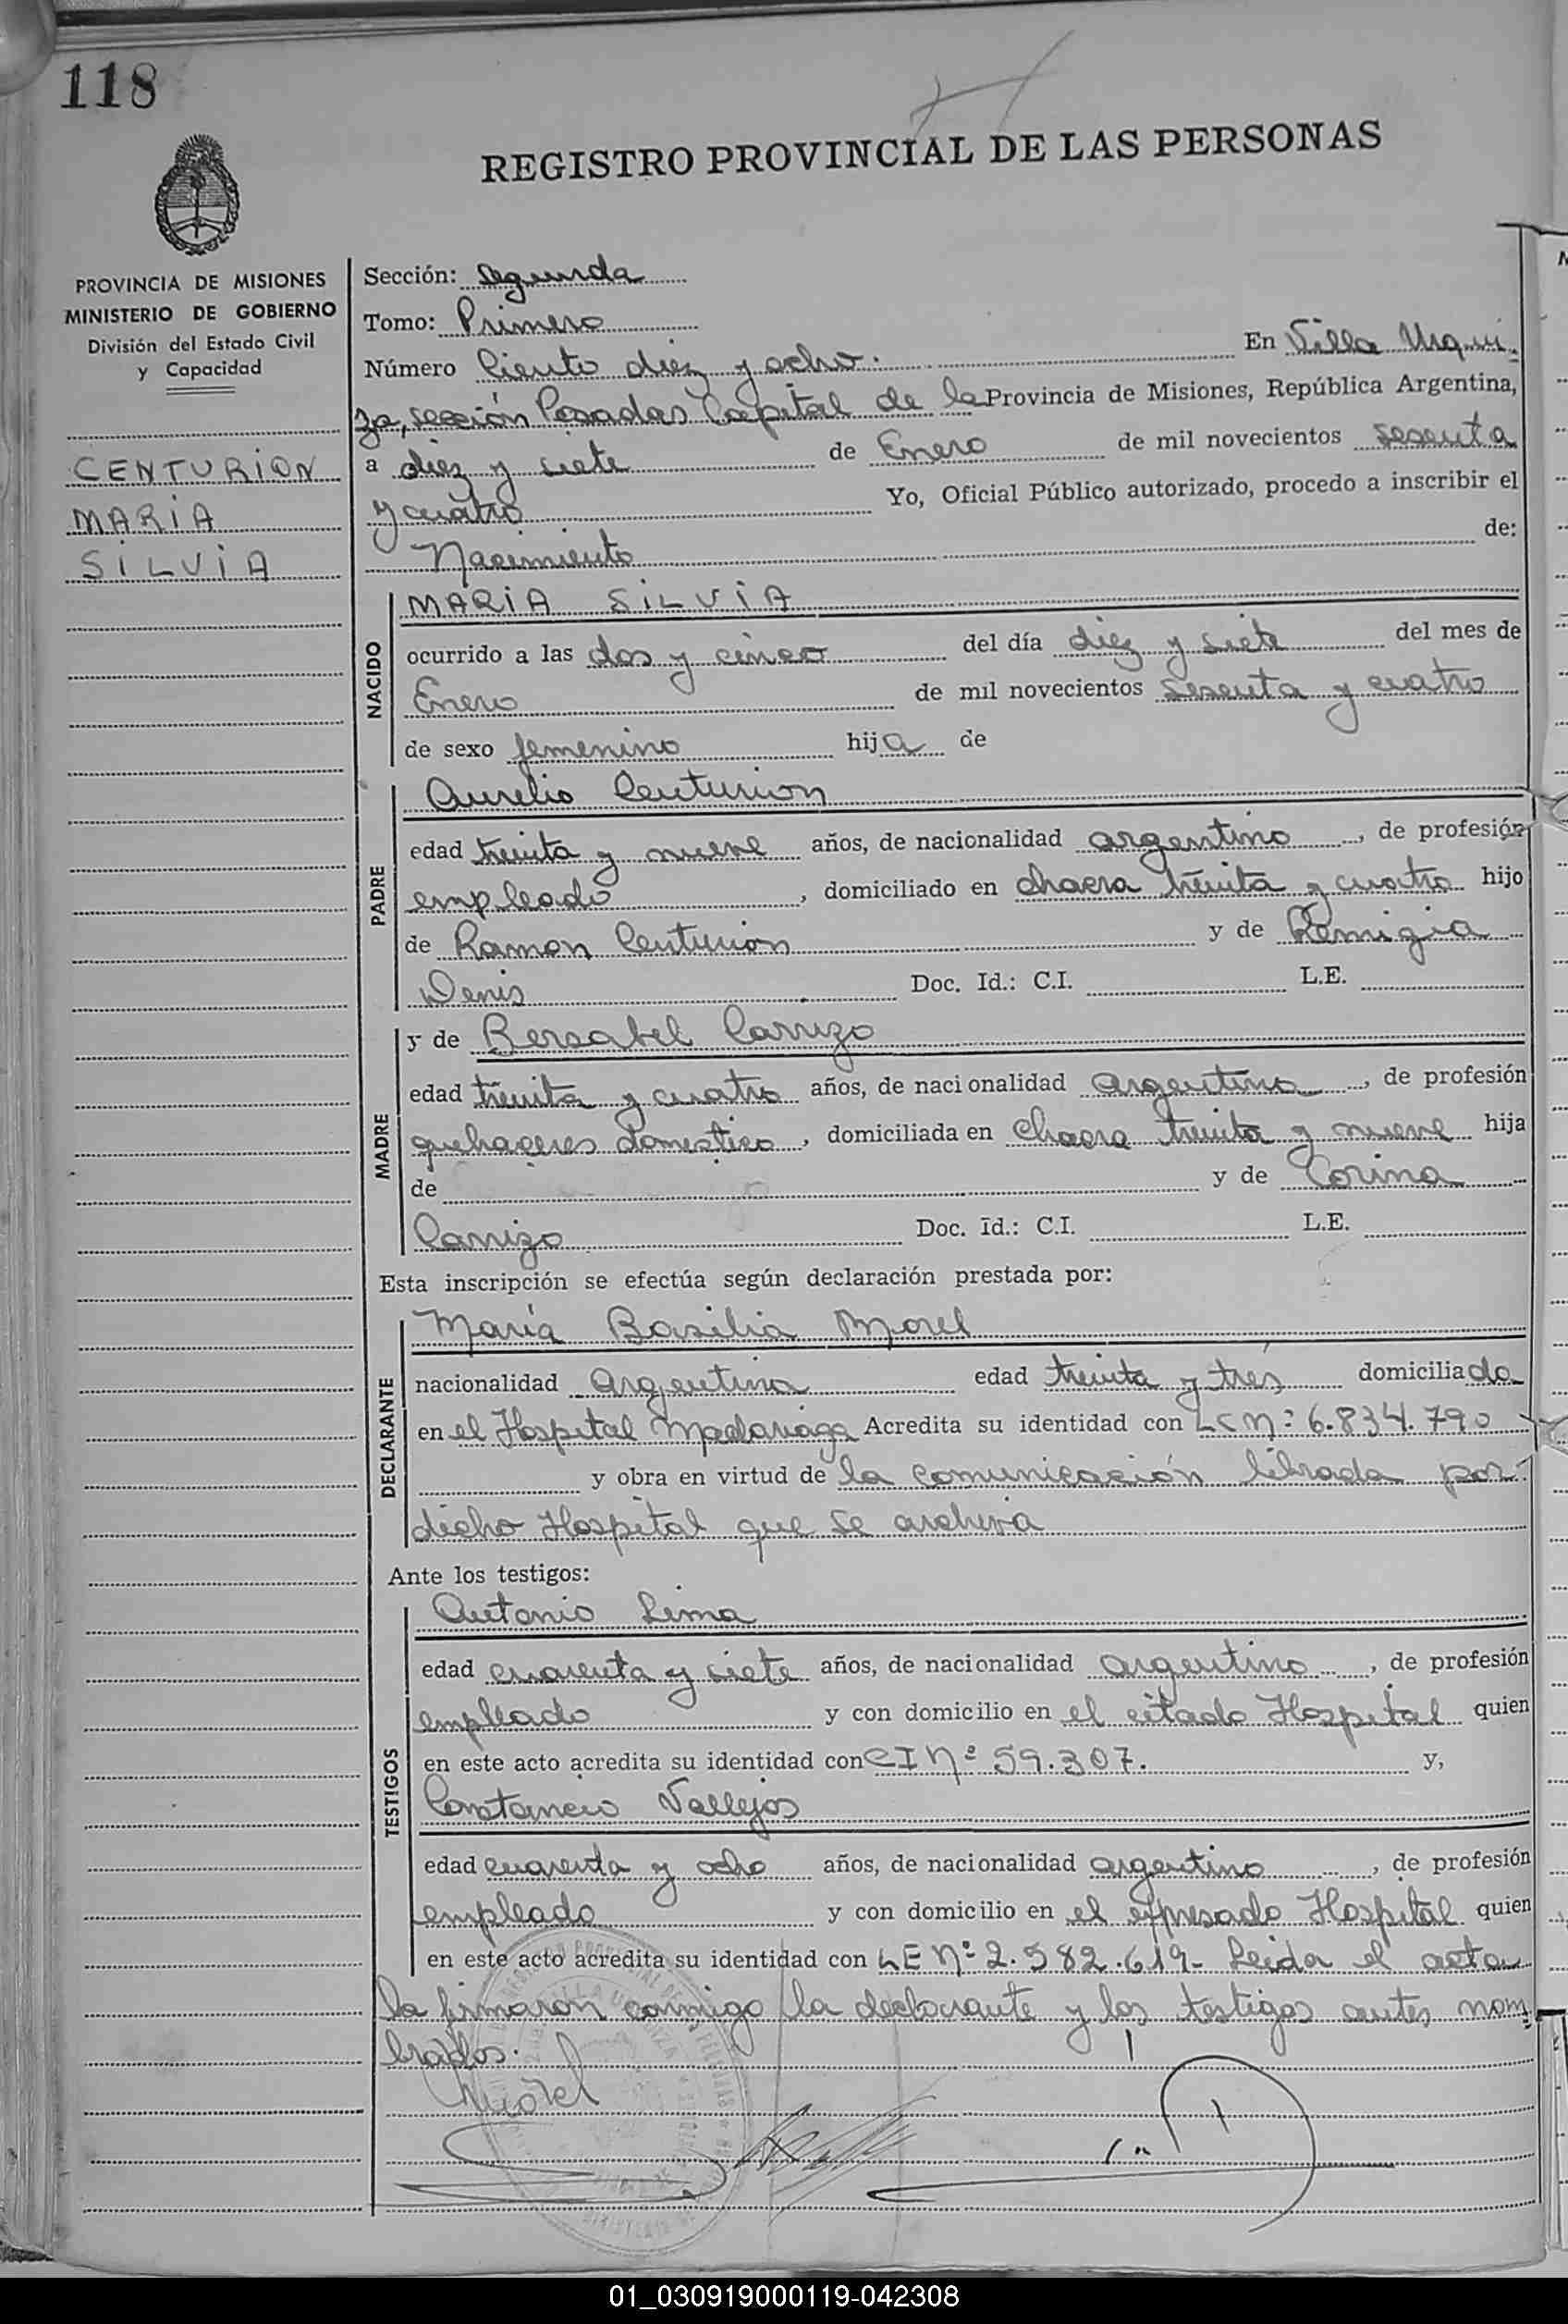 118
REGISTRO PROVINCIAL DE LAS PERSONAS
PROVINCIA DE MISIONES
MINISTERIO DE GOBIERNO
División del Estado Civil
y Capacidad
CENTURION
MARIA
SILVIA
Sección: Segunda
Tomo: Primero
Número Ciento diez y ocho. En Villa Urqui-
za, sección Posadas Capital de la Provincia de Misiones, República Argentina,
a diez y siete de Enero de mil novecientos sesenta
y cuatro Yo, Oficial Público autorizado, procedo a inscribir el
Nacimiento de:
NACIDO
MARIA SILVIA
ocurrido a las dos y cinco del día diez y siete del mes de
Enero de mil novecientos sesenta y cuatro
de sexo femenino hija de
PADRE
Aurelio Centurion
edad treinta y nueve años, de nacionalidad argentino, de profesión
empleado, domiciliado en chacra treinta y cuatro hijo
de Ramon Centurion y de Remigia
Denis Doc. Id.: C.I. L.E.
MADRE
y de Bersabel Carrizo
edad treinta y cuatro años, de nacionalidad argentina, de profesión
quehaceres domestico, domiciliada en chacra treinta y nueve hija
de y de Corina
Carrizo Doc. Id.: C.I. L.E.
Esta inscripción se efectúa según declaración prestada por:
DECLARANTE
María Basilia Morel
nacionalidad Argentina edad treinta y trés domiciliada
en el Hospital Madariaga Acredita su identidad con LC Nº 6.834.790
y obra en virtud de la comunicación librada por
dicho Hospital que se archiva
Ante los testigos:
TESTIGOS
Antonio Lima
edad cuarenta y siete años, de nacionalidad argentino, de profesión
empleado y con domicilio en el citado Hospital quien
en este acto acredita su identidad con CI Nº 59.307. y,
Constancio Vallejos
edad cuarenta y ocho años, de nacionalidad argentino, de profesión
empleado y con domicilio en el expresado Hospital quien
en este acto acredita su identidad con LE Nº 2.582.619- Leida el acta
la firmaron conmigo la declarante y los testigos antes nom
brados.
Morel
01_030919000119-042308